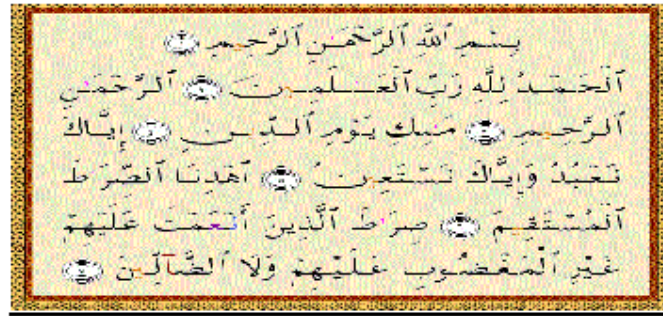 بِسْمِ ٱللَّهِ ٱلرَّحْمَٰنِ ٱلرَّحِيمِ ۝
ٱلْحَمْدُ لِلَّهِ رَبِّ ٱلْعَـٰلَمِينَ ۝ ٱلرَّحْمَٰنِ
ٱلرَّحِيمِ ۝ مَـٰلِكِ يَوْمِ ٱلدِّينِ ۝ إِيَّاكَ
نَعْبُدُ وَإِيَّاكَ نَسْتَعِينُ ۝ ٱهْدِنَا ٱلصِّرَٰطَ
ٱلْمُسْتَقِيمَ ۝ صِرَٰطَ ٱلَّذِينَ أَنْعَمْتَ عَلَيْهِمْ
غَيْرِ ٱلْمَغْضُوبِ عَلَيْهِمْ وَلَا ٱلضَّآلِّينَ ۝